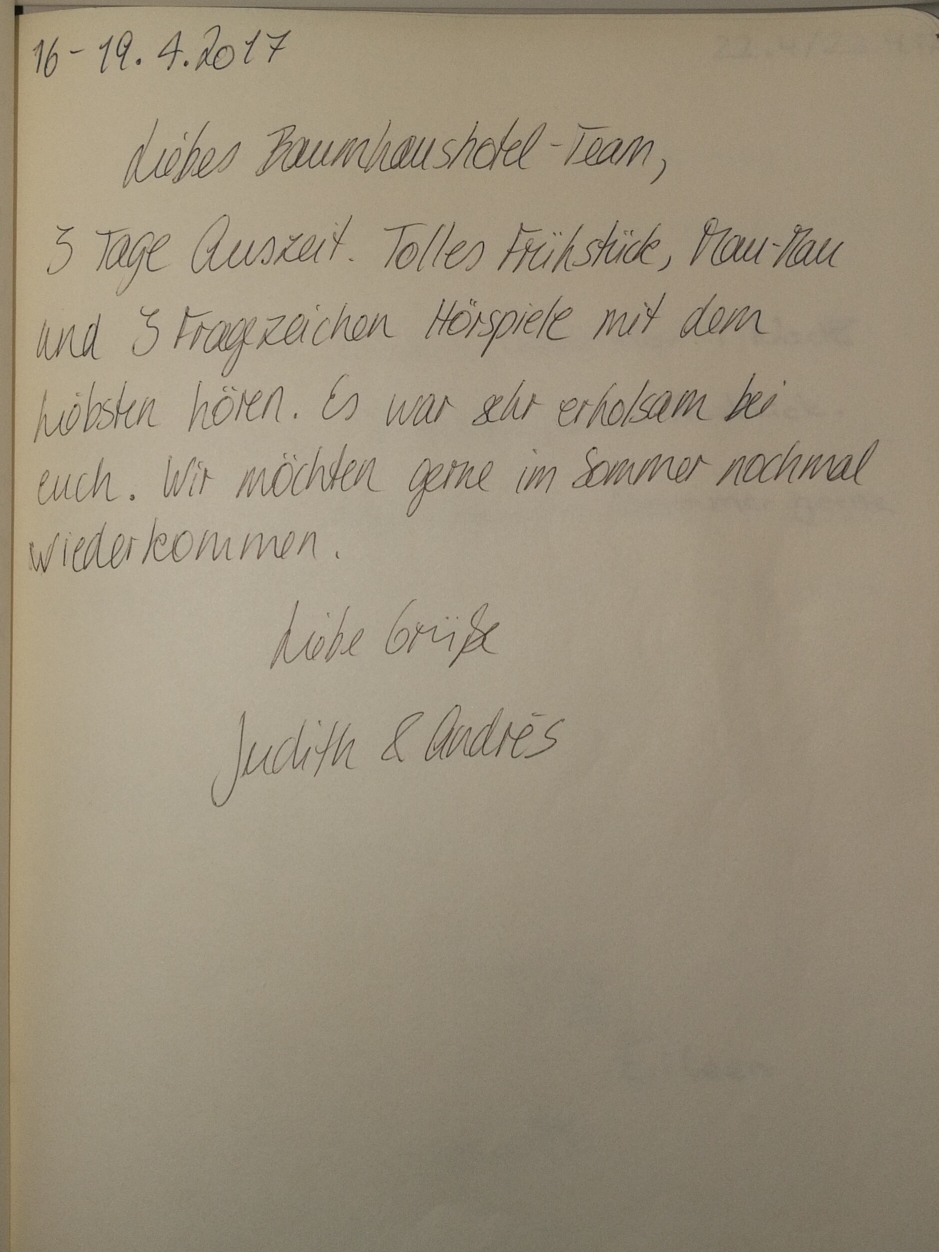 16-19.4.2017
Liebes Baumhaushotel-Team,
3 Tage Auszeit. Tolles Frühstück, Mau-Mau
und 3 Fragezeichen Hörspiele mit dem
liebsten hören. Es war sehr erholsam bei
euch. Wir möchten gerne im Sommer nochmal
wiederkommen.
Liebe Grüße
Judith & Andrés